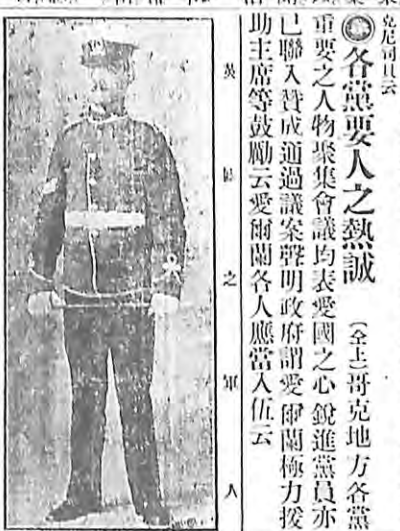 克尼司貝云
各黨要人之熱誠 (仝上)哥克地方各黨
重要之人物聚集會議均表愛國之心銳進黨員亦
已聯入贊成通過議案聲明政府謂愛爾蘭極力援
助主席等鼓勵云愛爾蘭各人應當入伍云
英國之軍人